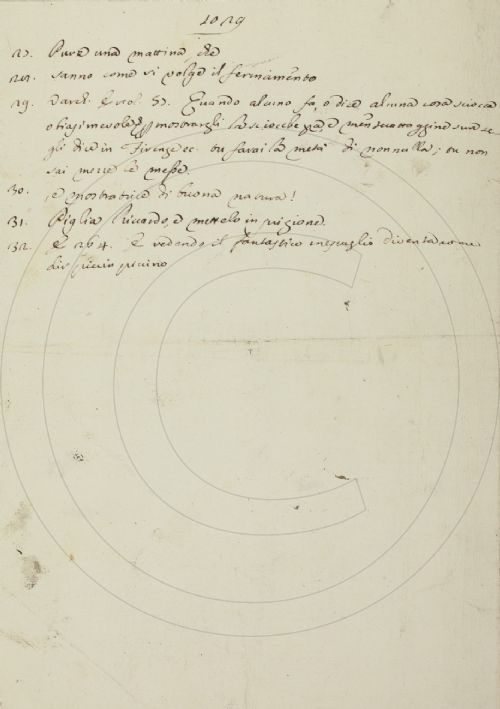 1029
27. Pure una mattina che
28. sanno come si volge il firmamento
29. Varch. Ercol. 57. Quando alcuno fa, o dice alcuna cosa sciocca
o biasimevole, per mostrargli la sciocchezza, e mentecattaggine sua se
gli dice in Firenze ec. tu farai la metà di nonnulla; tu non
sai mezze le messe.
30. e mostratrice di buona natura!
31. Piglia Riccardo, e mettelo in prigione.
32. E 264. E vedendo il fantastico miscuglio diventa come
dir piccin piccino